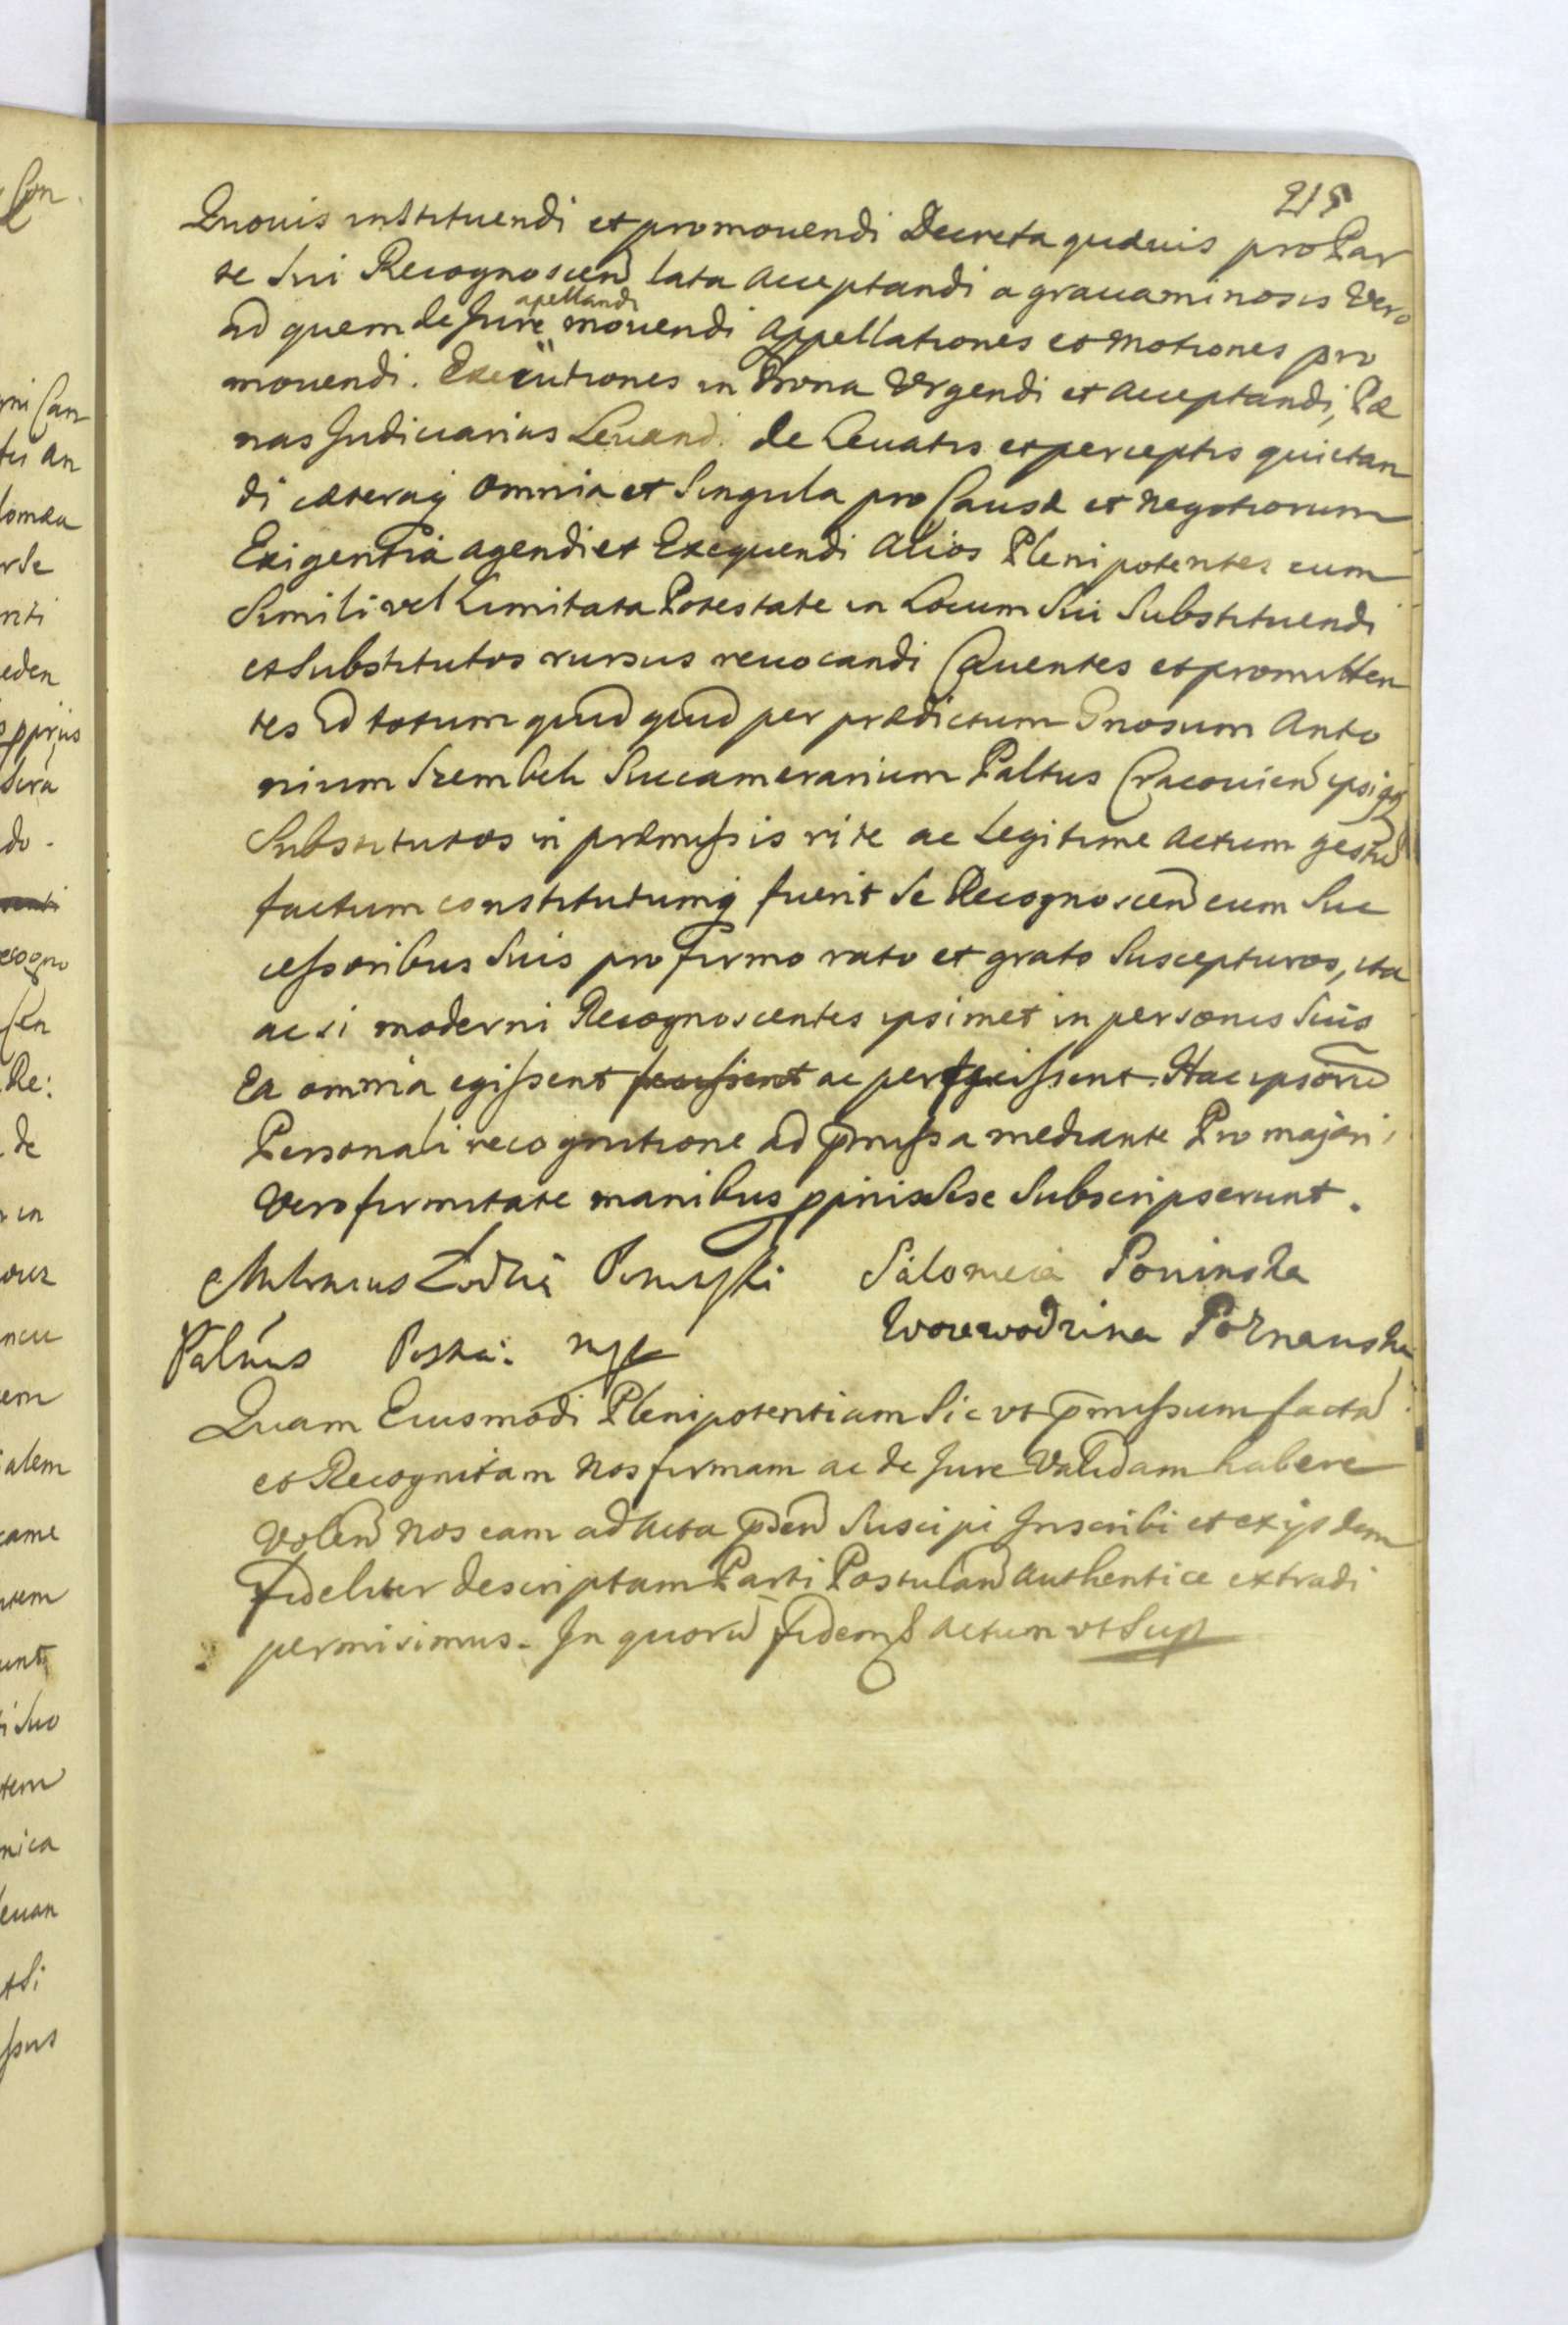 215
Quouis instituendi et promouendi Decreta quæuis pro Par
te sui Recognoscen lata acceptandi a grauaminosis Vero
ad quem de Jure apellandi mouendi appellationes et motiones pro
mouendi. Executiones in Bona Vrgendi et acceptandi, Pæ
nas Judiciarias Leuand. de Leuatis et perceptis quietan
di cæteraq omnia et Singula pro Causæ et negotiorum
Exigentia agendi et Exequendi alios Plenipotentes cum
Simili vel Limitata Potestate in Locum Sui Substituendi
et Substitutos rursus reuocandi Cauentes et promitten
tes Id totum quid quid per prædictum Gnosum Anto
nium Szembek Succamerarium Paltus Cracouien ipsiqq
Substitutos in præmissis rite ac Legitime actum gestu
factum constitutumq fuerit se Recognoscen cum Suc
cessoribus Suis pro firmo rato et grato Suscepturos, ita
ac si moderni Recognoscentes ipsimet in personis Suis
Ea omnia egissent fecissent ac peregissent. Hac ipsoru
Personali recognitione ad pmissa mediante Pro majori
Vero firmitate manibus pprijs Sese Subscripserunt.
Antonius Łodzia Poninski Salomeia Poninska
Palnus Posna: mp Woiewodzina Poznanska
Quam Eiusmodi Plenipotentiam Sic vt pmissum facta
et Recognitam nos firmam ac de Jure Validam habere
Volen nos eam ad Acta pden Suscipi Inscribi et ex ijsdem
fideliter descriptam Parti Postulan authentice extradi
permisimus. In quoru fidem Actum vt Sup